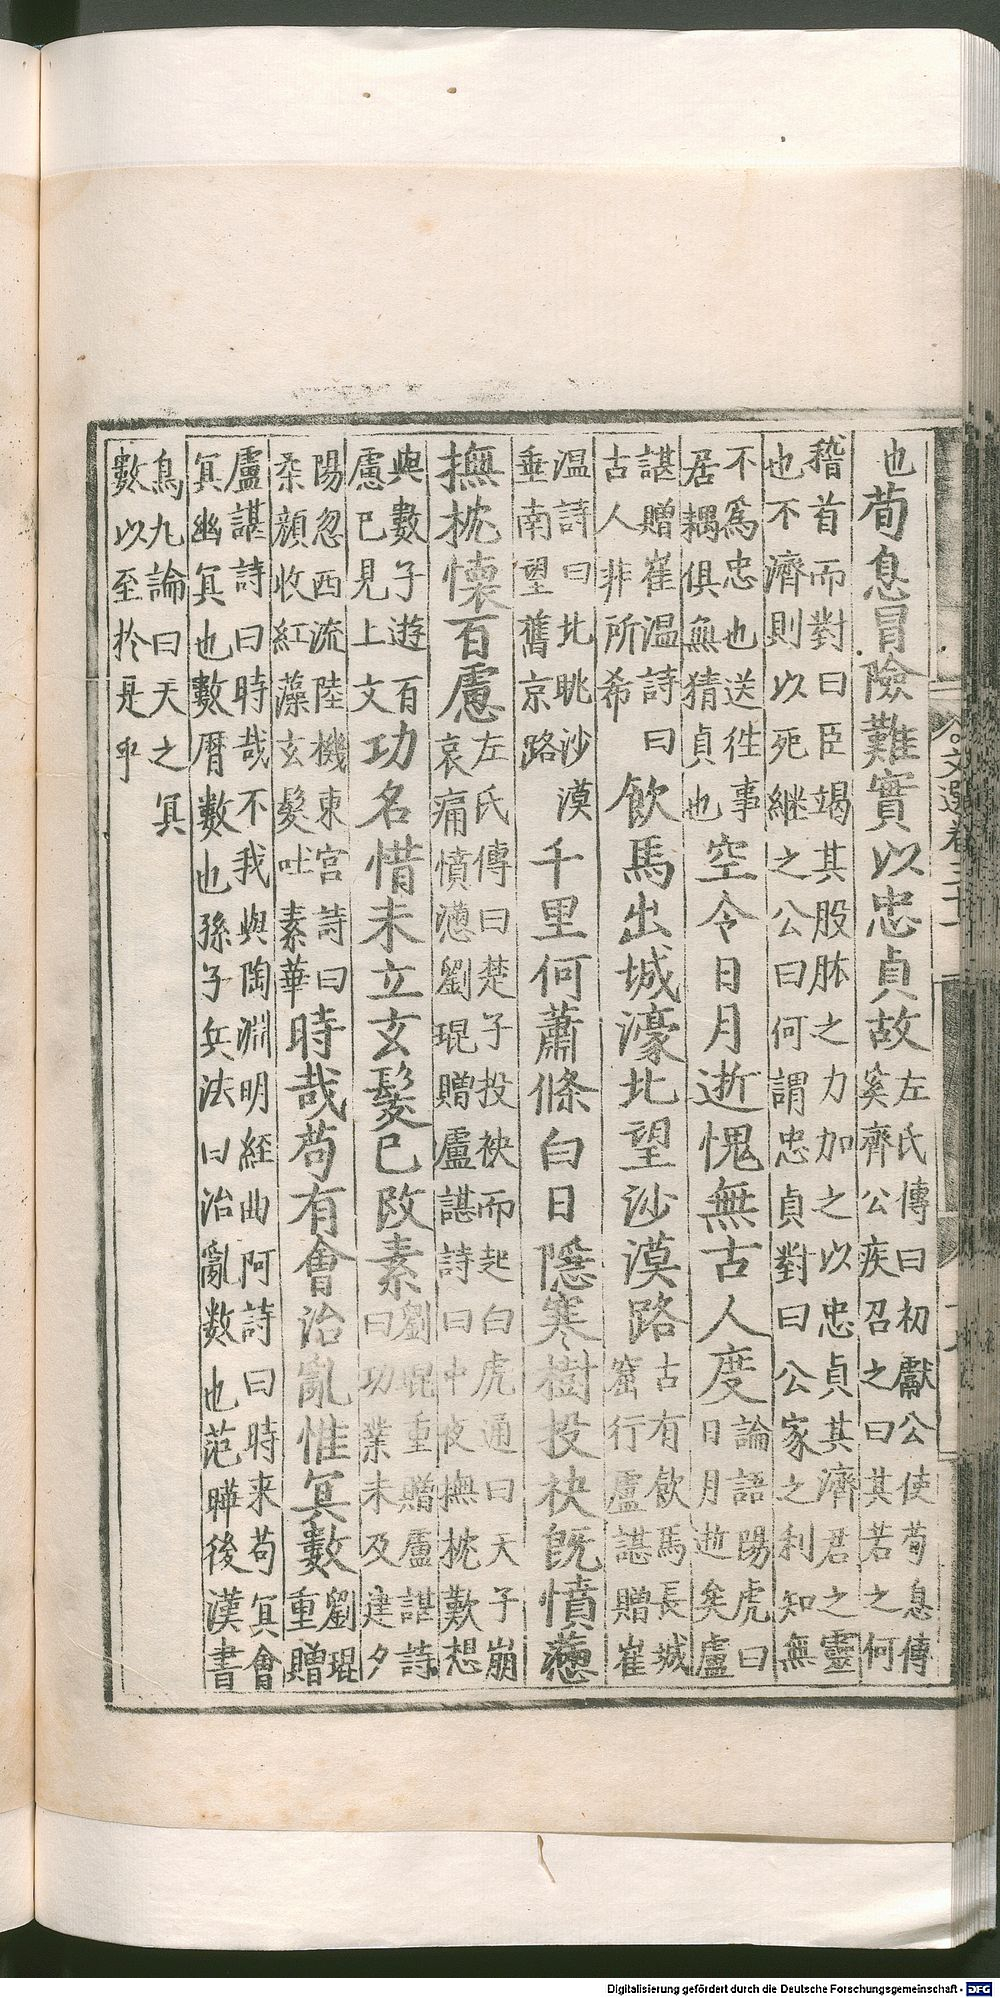 也荀息冒險難實以忠貞故
左氏傳曰初獻公使荀息傳
奚齊公疾召之曰其若之何
稽首而對曰臣竭其股肱之力加之以忠貞其濟君之靈
也不濟則以死継之公曰何謂忠貞對曰公家之利知無
不爲忠也送徃事
居耦俱無猜貞也
空令日月逝愧無古人度
論語陽虎曰
日月逝矣盧
諶贈崔温詩曰
古人非所希
飲馬出城濠北望沙漠路
古有飲馬長城
窟行盧諶贈崔
温詩曰北眺沙漠
垂南望舊京路
千里何蕭條白日隱寒樹投袂旣憤懣
撫枕懷百慮
左氏傳曰楚子投袂而起白虎通曰天子崩
哀痛憤懣劉琨贈盧諶詩曰中夜撫枕歎想
與數子遊百
慮已見上文
功名惜未立玄髮已改素
劉琨重贈盧諶詩
曰功業未及建夕
陽忽西流陸機東宮詩曰
柔顔收紅藻玄髮吐素華
時哉苟有會治亂惟冥數
劉琨
重贈
盧諶詩曰時哉不我與陶淵明経曲阿詩曰時来苟冥會
冥幽冥也數曆數也孫子兵法曰治亂數也范曄後漢書
鳥九論曰天之冥
數以至於是乎
文選卷三十一
Digitalisierung gefördert durch die Deutsche Forschungsgemeinschaft - DFG